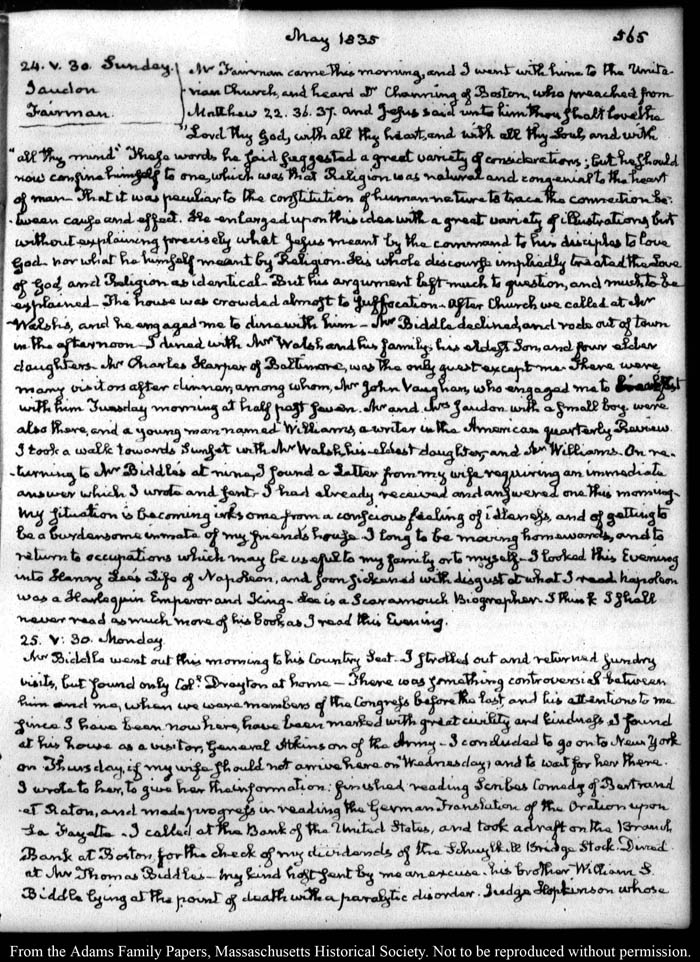 May 1835 565
24. V. 30. Sunday. Mr Fairman came this morning, and I went with him to the Unita-
Jaudon rian Church, and heard Dr Channing of Boston, who preached from
Fairman. Matthew 22. 36. 37. And Jesus said unto him thou shalt love the
"Lord thy God, with all thy heart, and with all thy Soul, and with
"all thy mind" These words he said suggested a great variety of considerations; but he should
now confine himself to one, which was that Religion was natural and congenial to the heart
of man. That it was peculiar to the constitution of human nature to trace the connection be-
tween cause and effect. He enlarged upon this idea with a great variety of illustrations, but
without explaining precisely what Jesus meant by the command to his disciples to love
God nor what he himself meant by Religion. His whole discourse impliedly treated the Love
of God, and Religion as identical - But his argument left much to question, and much to be
explained - The house was crowded almost to suffocation - After Church we called at Mr
Walsh's, and he engaged me to dine with him - Mr Biddle declined, and rode out of town
in the afternoon - I dined with Mr Walsh and his family; his eldest Son, and four elder
daughters - Mr Charles Harper of Baltimore, was the only guest except me. There were
many visitors after dinner, among whom, Mr John Vaughan, who engaged me to breakfast
with him Tuesday morning at half past seven. Mr and Mrs Jaudon with a small boy were
also there, and a young man named Williams, a writer in the American quarterly Review.
I took a walk towards Sunset with Mr Walsh, his eldest daughter, and Mr Williams. On re-
turning to Mr Biddle's at nine, I found a Letter from my wife requiring an immediate
answer which I wrote and sent - I had already received and answered one this morning -
My situation is becoming irksome from a conscious feeling of idleness, and of getting to
be a burdensome inmate of my friend's house. I long to be moving homewards, and to
return to occupations which may be useful to my family or to myself - I looked this Evening
into Henry Lee's Life of Napoleon, and soon sickened with disgust at what I read. Napoleon
was a Harlequin Emperor and King - Lee is a Scaramouch Biographer. I think I shall
never read as much more of his book, as I read this Evening.
25. V: 30. Monday
Mr Biddle went out this morning to his Country Seat - I strolled out and returned sundry
visits, but found only Col.l Drayton at home - There was something controversial between
him and me, when we were members of the Congress before the last and his attentions to me
since I have been now here, have been marked with great civility and kindness. I found
at his house as a visitor, General Atkinson of the Army - I concluded to go on to New York
on Thursday, if my wife should not arrive here on Wednesday; and to wait for her there.
I wrote to her, to give her the information: finished reading Scribes Comedy of Bertrand
et Raton, and made progress in reading the German Translation of the Oration upon
La Fayette. I called at the Bank of the United States, and took a draft on the Branch
Bank at Boston, for the check of my dividends of the Schuylkill Bridge Stock. Dined
at Mr Thomas Biddle's - My kind host sent by me an excuse. his brother William S.
Biddle lying at the point of death with a paralytic disorder. Judge Hopkinson whose
From the Adams Family Papers, Massachusetts Historical Society. Not to be reproduced without permission.